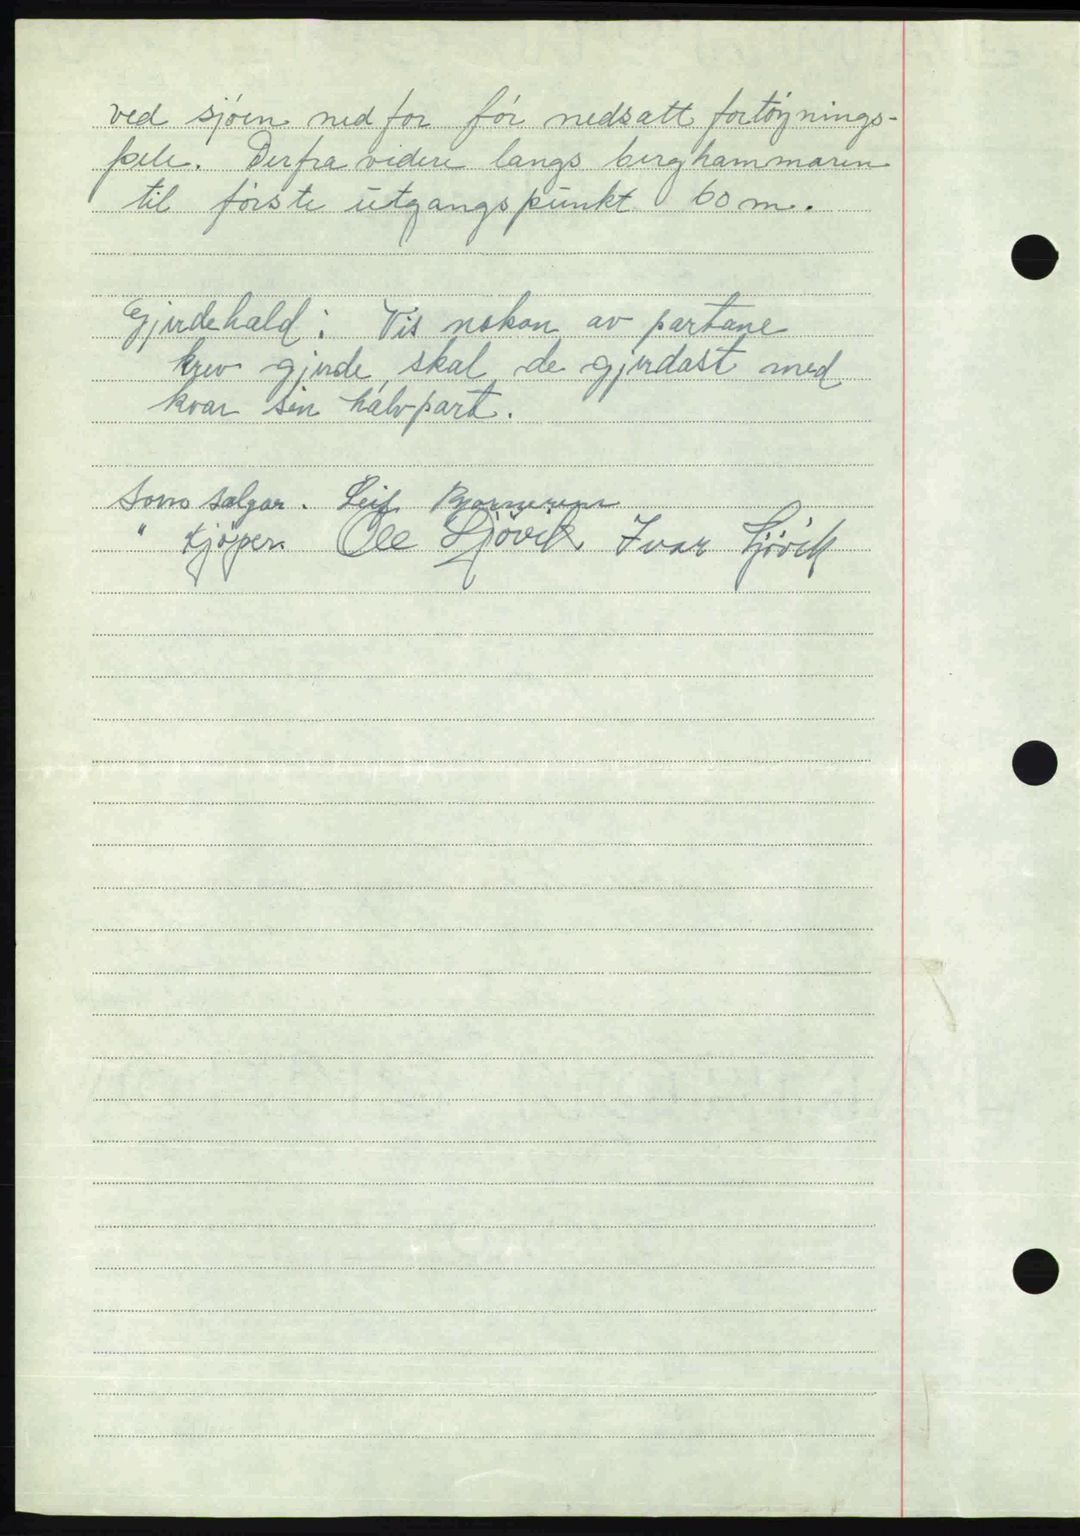 ved sjøen nedfor før nedsatt fortøynings-
pele. Derfra videre langs berghammaren
til første utgangspunkt 60 m.
Gjerdehald: Vis nokon av partane
krev gjerde, skal de gjerdast med
kvar sin halvpart.
Som salgar. Leif
" kjøper Ole Sjøvik, Ivar Sjøvik